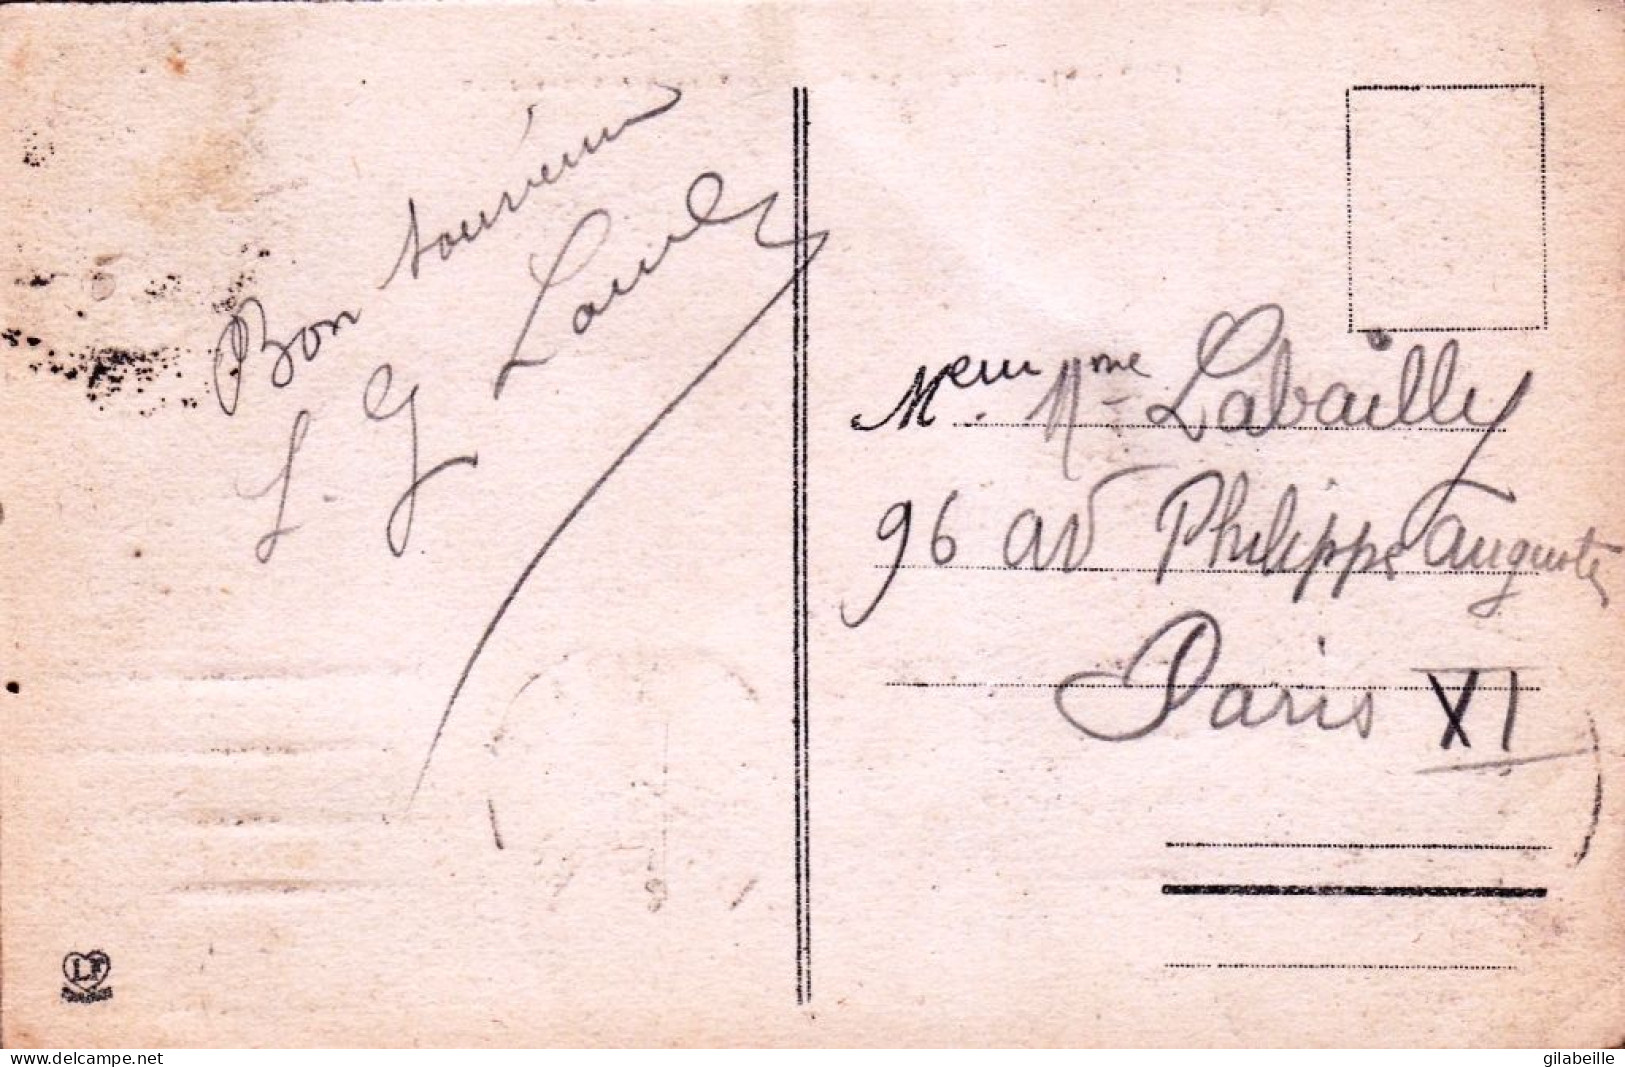 Bon souvenir
L. G
Meur Mme Labailly
96 av Philippe Auguste
Paris XI
LF
delcampe.net
gilabeille